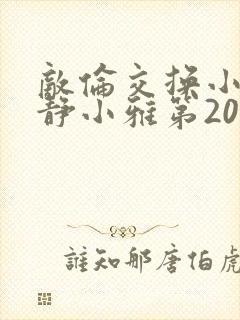 敵倫交换小
静小雅第20
誰知那唐伯虎